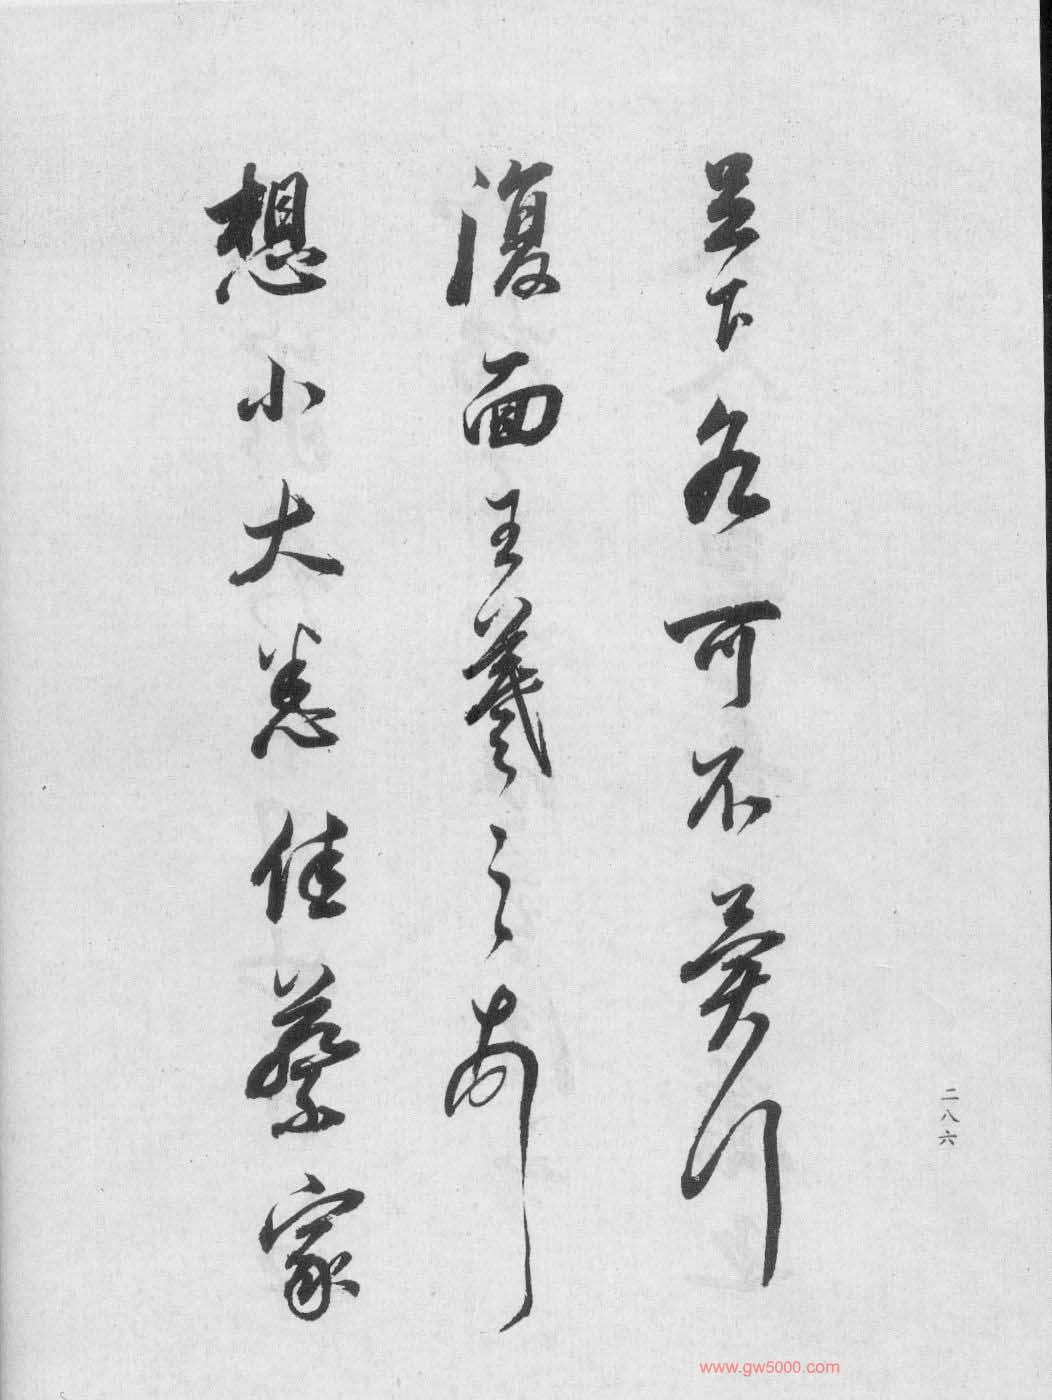 足下各可不冀行
復面王羲之
想小大悉佳蔡家
二八六
www.gw5000.com